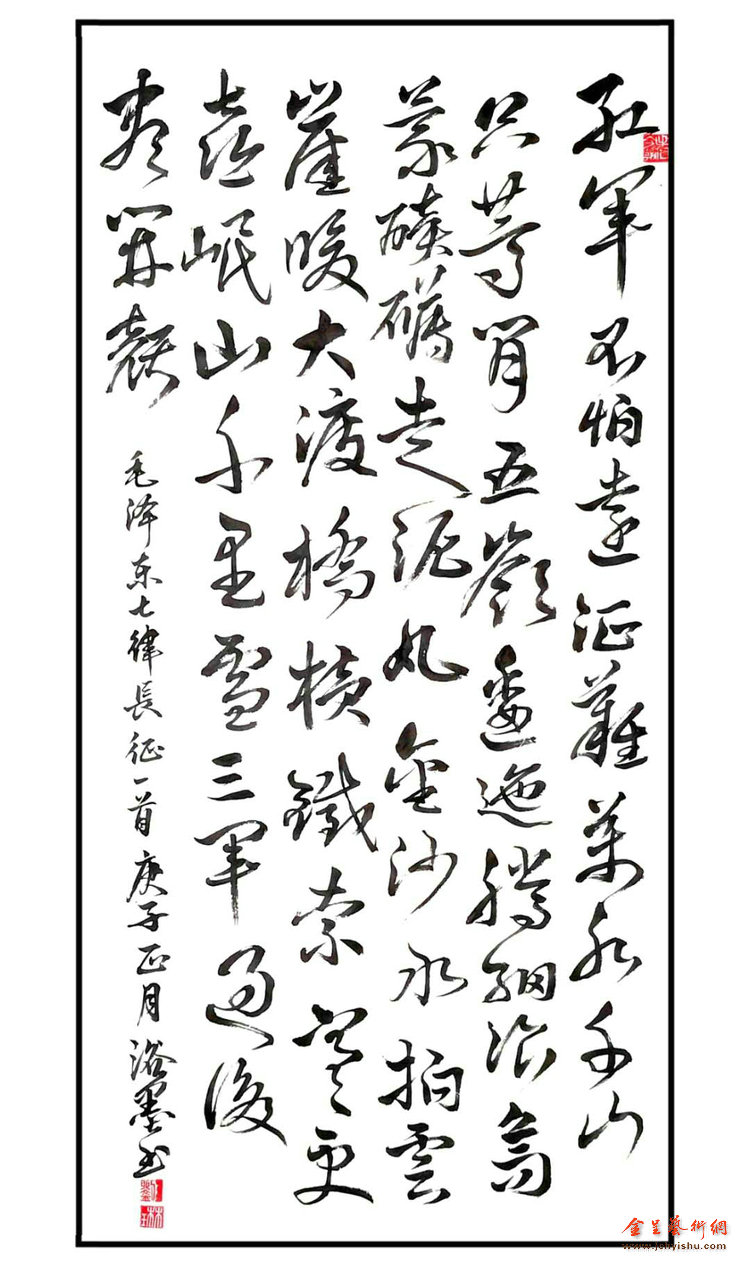 紅軍不怕遠征難萬水千山
只等閒五嶺逶迤騰細浪烏
蒙磅礴走泥丸金沙水拍雲
崖暖大渡橋横鐵索寒更
喜岷山千里雪三軍過後
盡開顏
毛泽东七律長征一首庚子正月浴墨书
金呈藝術網
www.jchyishu.com